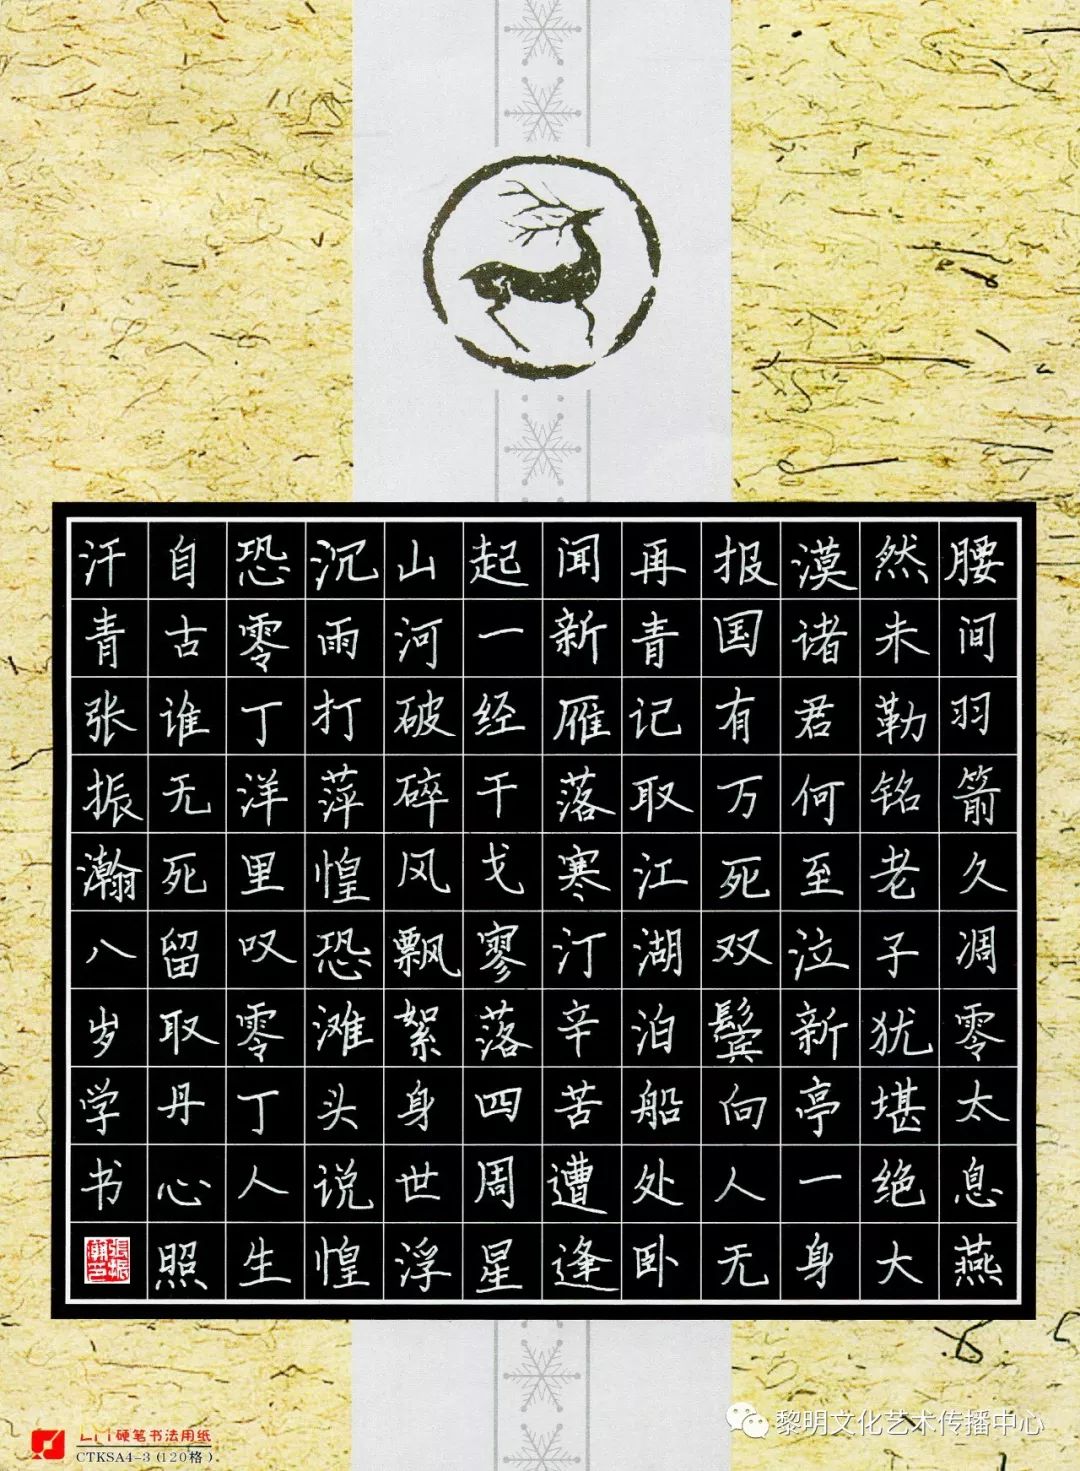 腰间羽箭久凋零太息燕
然未勒铭老子犹堪绝大
漠诸君何至泣新亭一身
报国有万死双鬓向人无
再青记取江湖泊船处卧
闻新雁落寒汀辛苦遭逢
起一经干戈寥落四周星
山河破碎风飘絮身世浮
沉雨打萍惶恐滩头说惶
恐零丁洋里叹零丁人生
自古谁无死留取丹心照
汗青张振瀚八岁学书
硬笔书法用纸
CTKSA4-3(120格)
黎明文化艺术传播中心